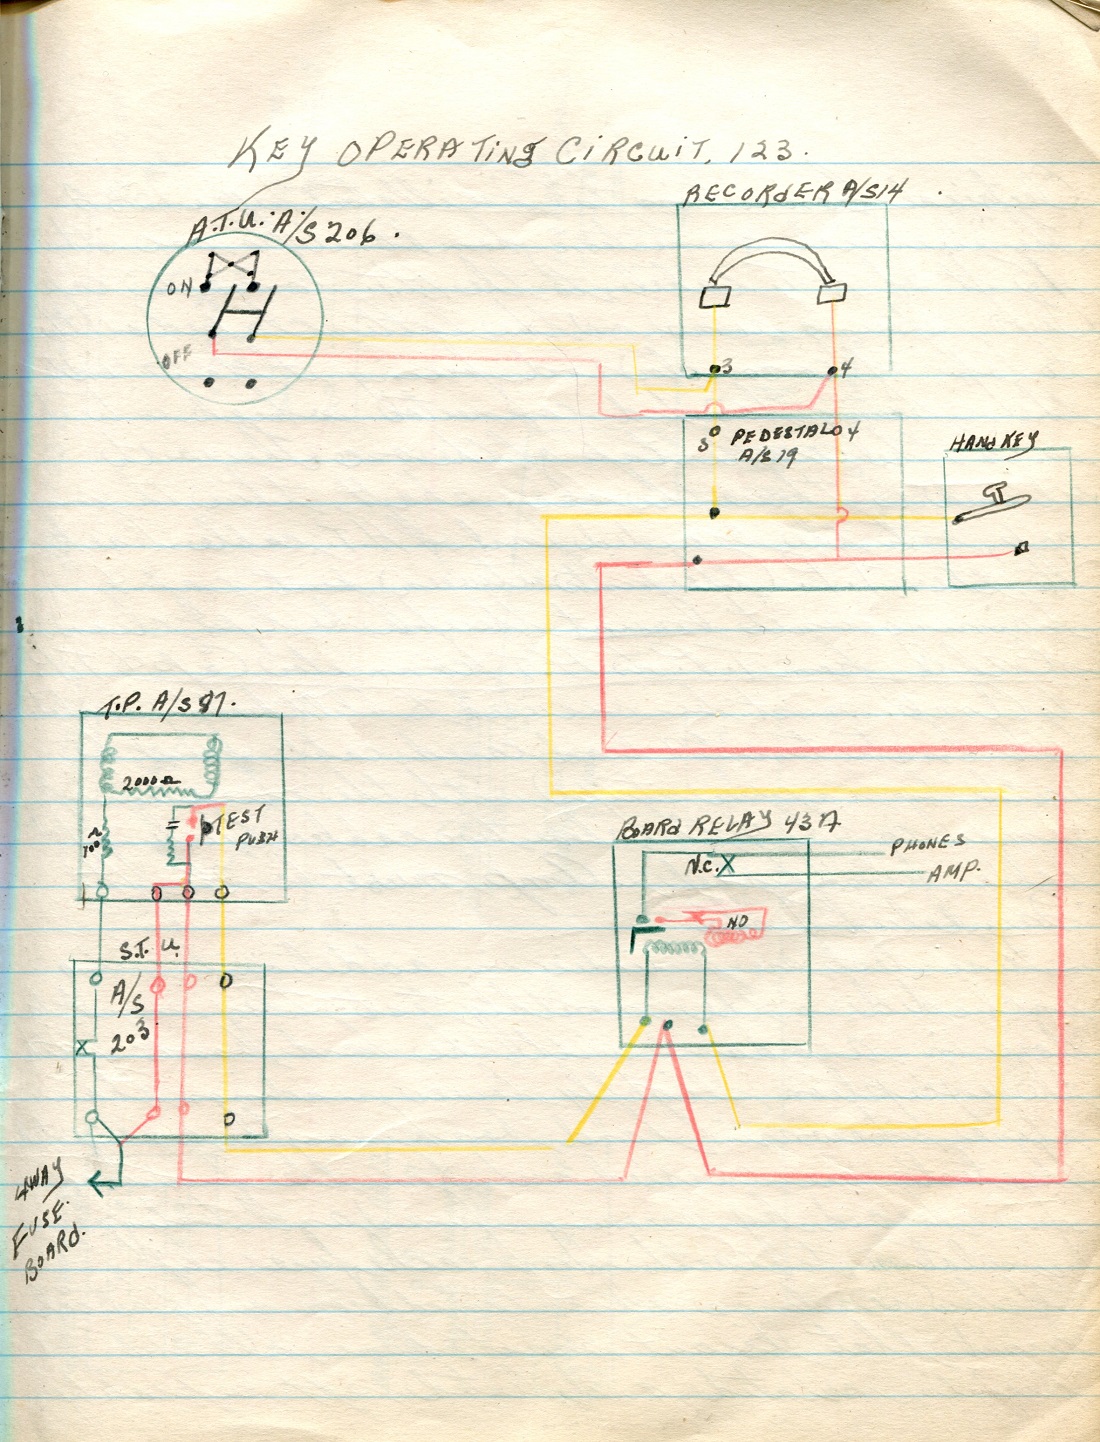 KEY OPERATING CIRCUIT. 123.
A.T.U. A/S 206.
ON
OFF
RECORDER A/S14
3
4
PEDESTAL
A/S 19
HAND KEY
T.P. A/S 87.
2000 Ω
100 Ω
TEST
PUSH
S.T.U.
A/S
203
X
4WAY
FUSE
BOARD.
BOARD RELAY 43A
PHONES
N.C. X
AMP.
NO